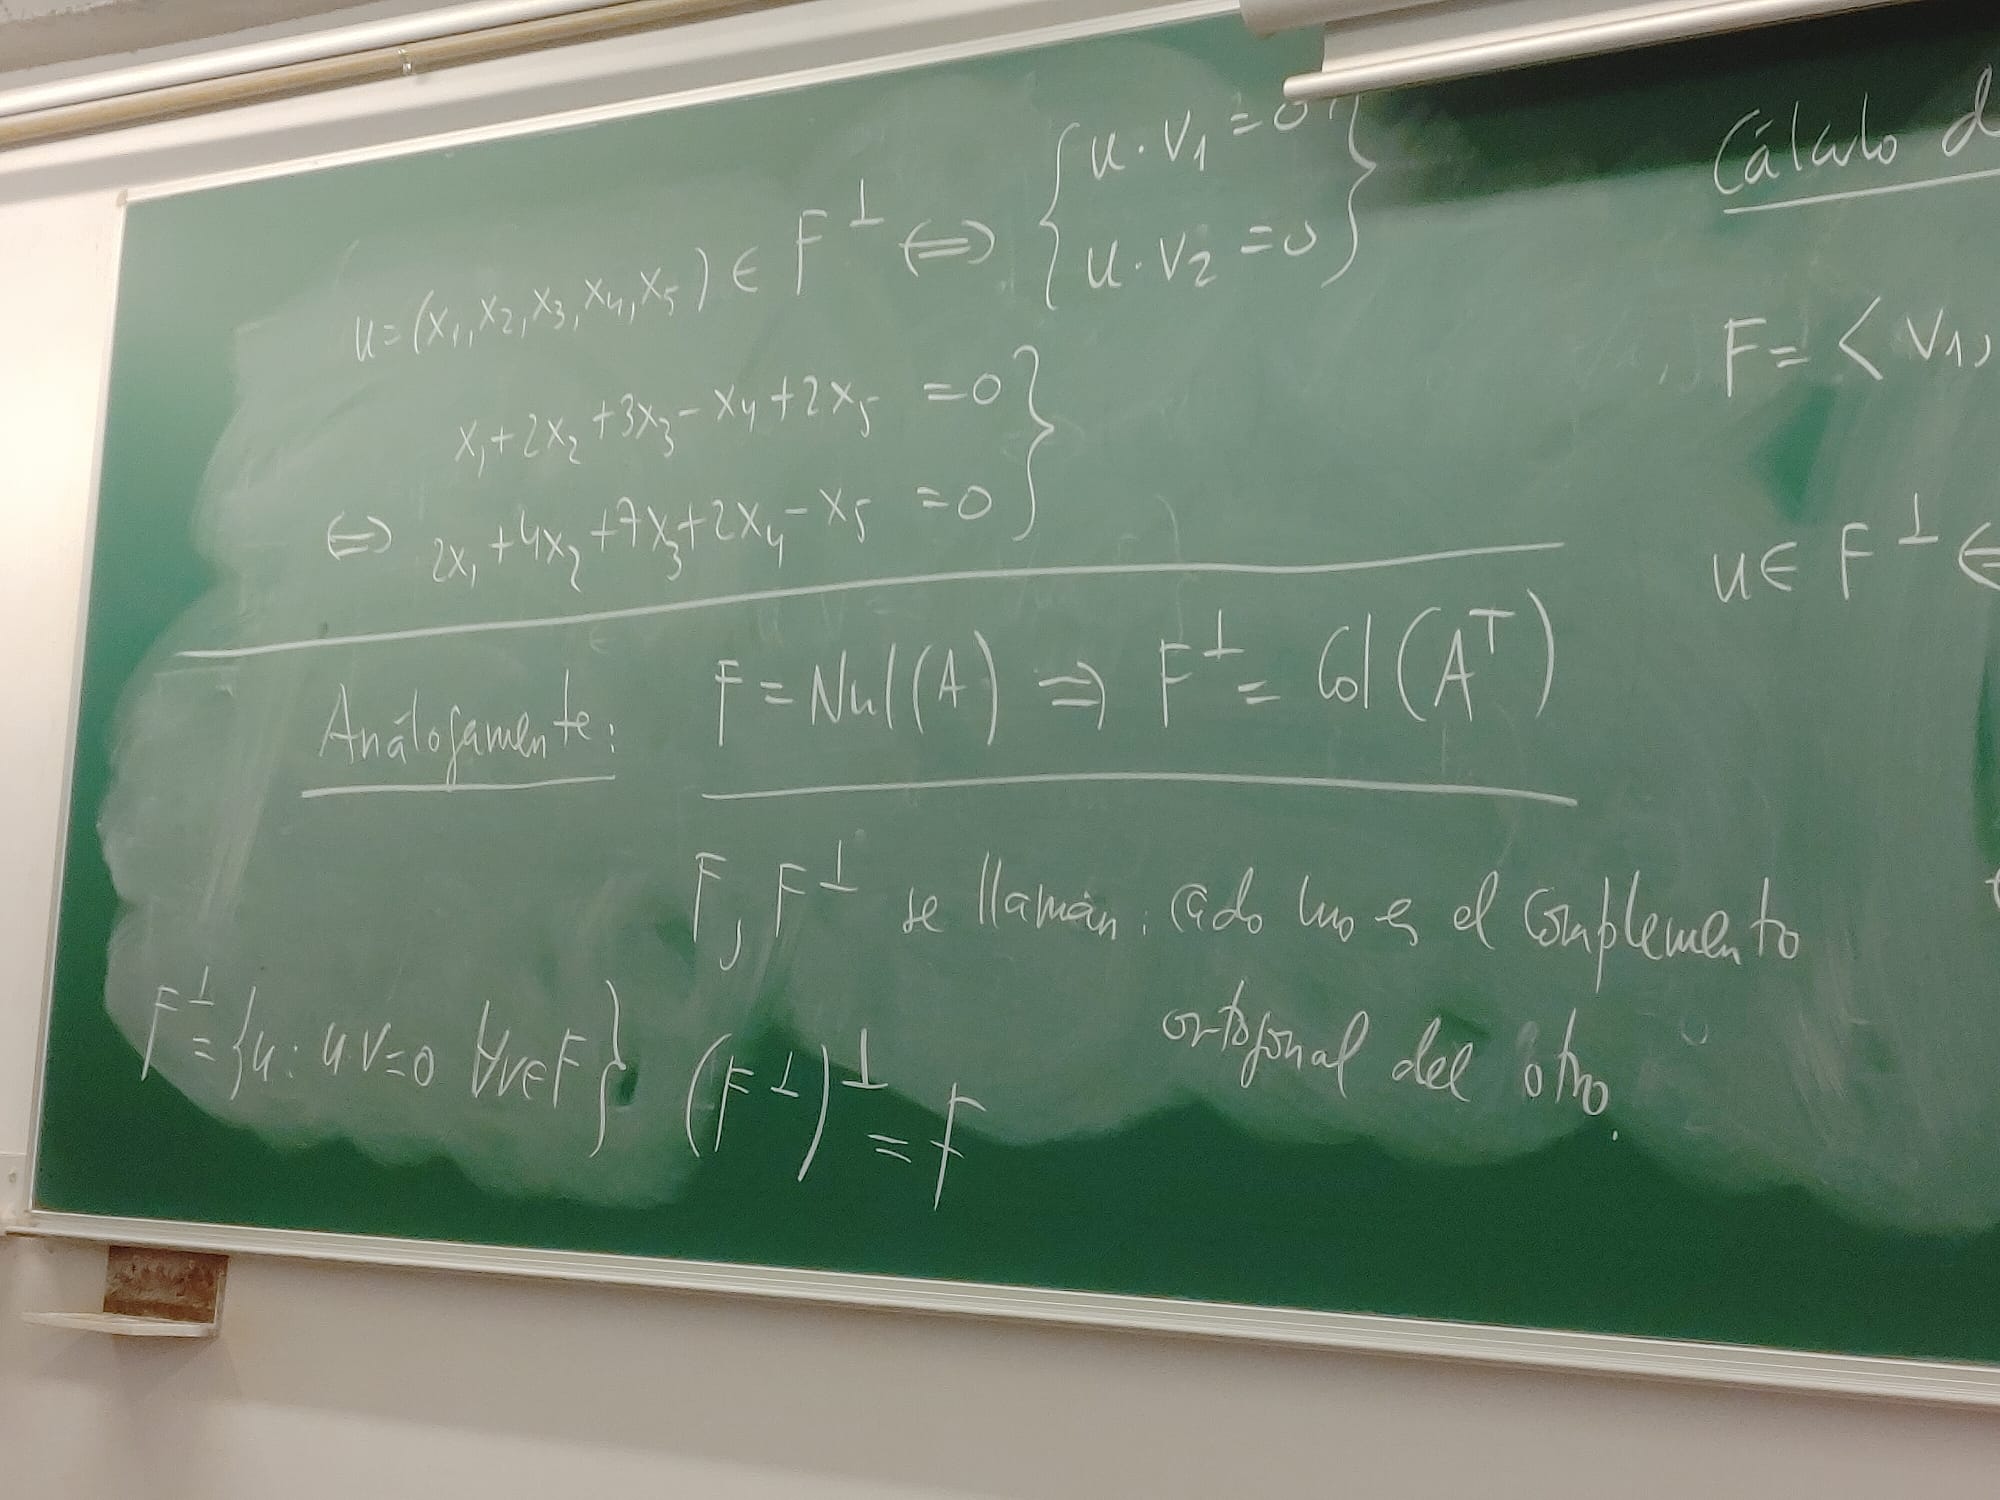 u=(x₁,x₂,x₃,x₄,x₅) ∈ F^⊥ ⇔ { u·v₁=0
u·v₂=0 }
x₁+2x₂+3x₃-x₄+2x₅ =0
⇔ 2x₁+4x₂+7x₃+2x₄-x₅ =0 }
Análogamente: F=Nul(A) ⇒ F^⊥= Col(A^T)
F, F^⊥ se llaman: cada uno es el complemento
ortogonal del otro.
F^⊥={u: u·v=0 ∀v∈F} (F^⊥)^⊥ = F
Cálculo d
F= < v₁,
u∈ F^⊥ ⇔